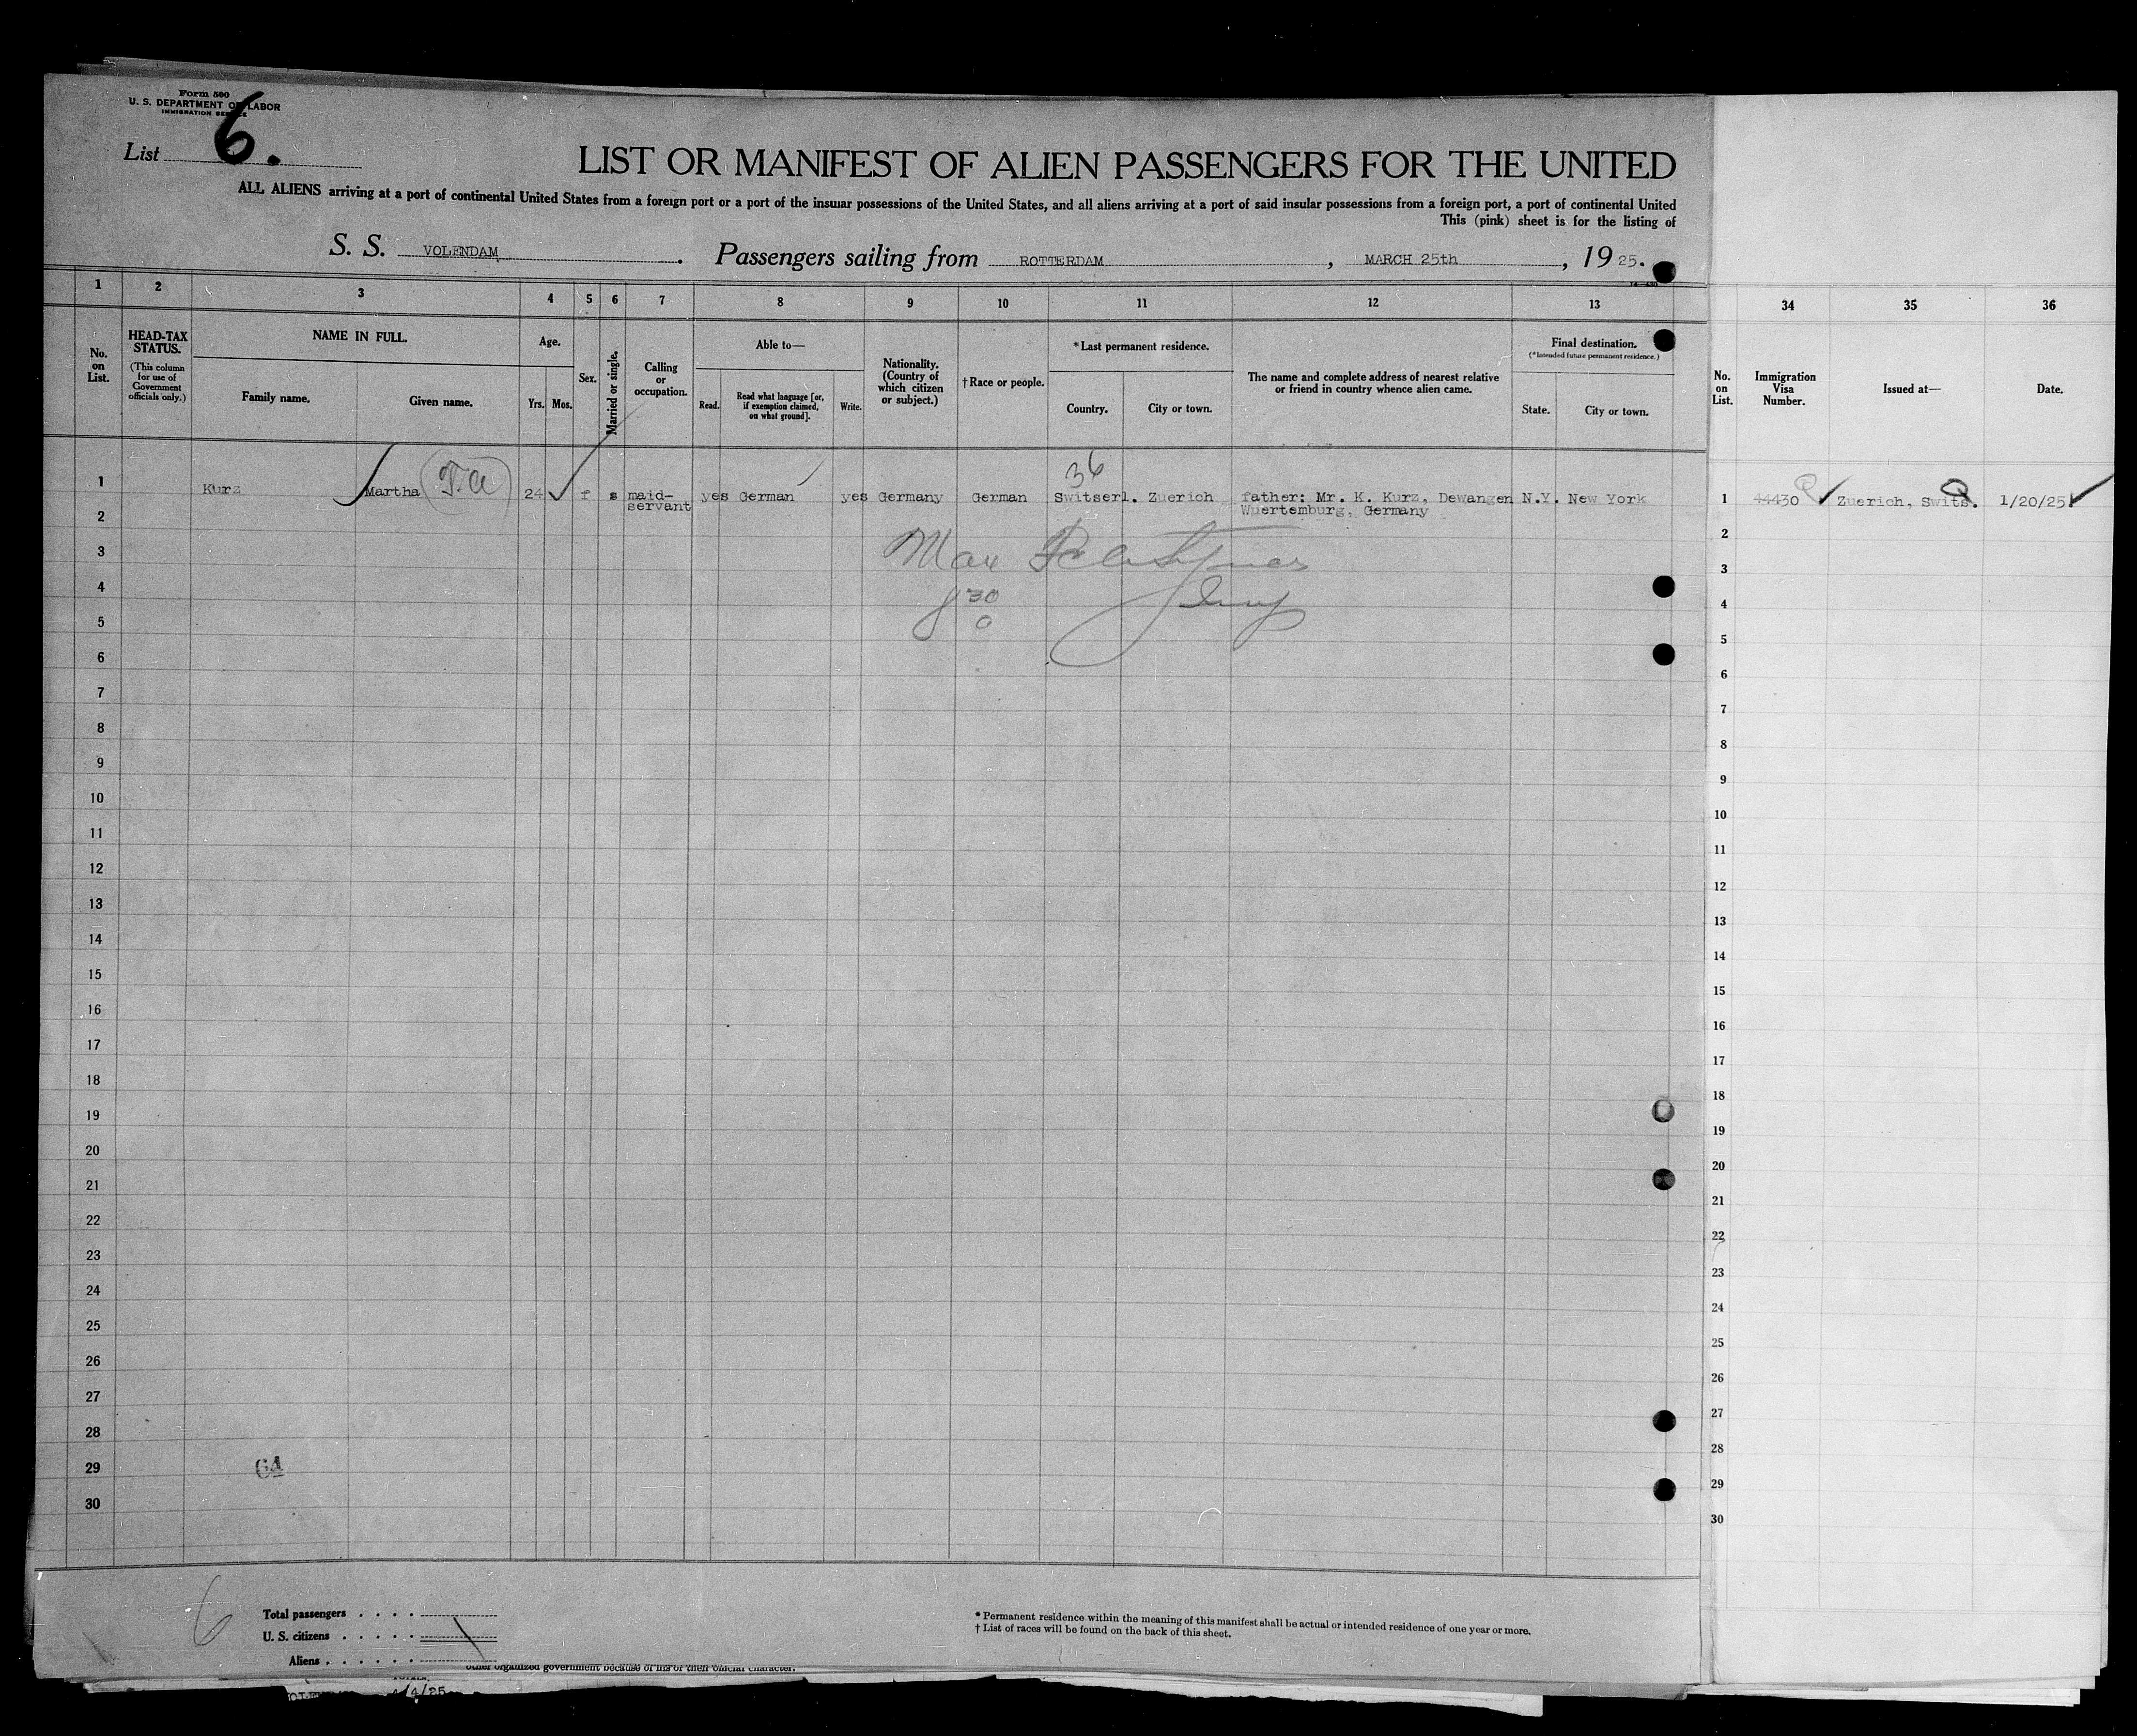 Form 500
U. S. DEPARTMENT OF LABOR
IMMIGRATION SERVICE
List 6.
LIST OR MANIFEST OF ALIEN PASSENGERS FOR THE UNITED
ALL ALIENS arriving at a port of continental United States from a foreign port or a port of the insular possessions of the United States, and all aliens arriving at a port of said insular possessions from a foreign port, a port of continental United
This (pink) sheet is for the listing of
S. S. VOLENDAM. Passengers sailing from ROTTERDAM, MARCH 25th, 1925.
1 2 3 4 5 6 7 8 9 10 11 12 13 34 35 36
No. on List.
HEAD-TAX STATUS.
(This column for use of Government officials only.)
NAME IN FULL.
Family name.
Given name.
Age.
Yrs. Mos.
Sex.
Married or single.
Calling or occupation.
Able to—
Read.
Read what language [or, if exemption claimed, on what ground].
Write.
Nationality. (Country of which citizen or subject.)
†Race or people.
*Last permanent residence.
Country.
City or town.
The name and complete address of nearest relative or friend in country whence alien came.
Final destination.
(*Intended future permanent residence.)
State.
City or town.
No. on List.
Immigration Visa Number.
Issued at—
Date.
36
1 Kurz Martha T.A 24 f s maid- yes German yes Germany German Switserl. Zuerich father: Mr. K. Kurz, Dewangen N.Y. New York 1 44430 Q Zuerich, Swits. Q 1/20/25
servant Wuertemburg, Germany
2 2
Max
3 3
4 30 4
5 5
6 6
7 7
8 8
9 9
10 10
11 11
12 12
13 13
14 14
15 15
16 16
17 17
18 18
19 19
20 20
21 21
22 22
23 23
24 24
25 25
26 26
27 27
28 28
29 6A 29
30 30
6
Total passengers
U. S. citizens
Aliens
* Permanent residence within the meaning of this manifest shall be actual or intended residence of one year or more.
† List of races will be found on the back of this sheet.
other organized government because of his or their official character.
4/4/25